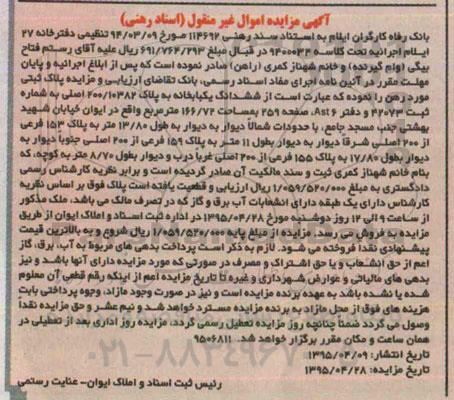 آگهی مزایده اموال غیر منقول (اسناد رهنی)
بانک رفاه کارگران ایلام به استناد سند رهنی ۱۱۴۶۹۲ مورخ ۹۴/۰۳/۰۹ تنظیمی دفترخانه ۲۷
ایلام اجرائیه تحت کلاسه ۹۴۰۰۰۳۳ در قبال مبلغ ۶۹۱/۷۶۴/۲۹۳ ریال علیه آقای رستم فتاح
بیگی (وام گیرنده) و خانم شهناز کمری (راهن) صادر نموده است که پس از ابلاغ اجرائیه و پایان
مهلت مقرر در آئین نامه اجرای مفاد اسناد رسمی، بانک تقاضای ارزیابی و مزایده پلاک ثبتی
مورد رهن را نموده که عبارت است از ششدانگ یکبابخانه به پلاک ۲۰۰/۱۰۳۸۲ اصلی به شماره
ثبت ۴۲۰۷۳ و دفتر Ast۶، صفحه ۲۵۹ بمساحت ۱۶۶/۷۲ مترمربع واقع در ایوان خیابان شهید
بهشتی جنب مسجد جامع، با حدودات شمالا دیوار به دیوار به طول ۱۳/۸۰ متر به پلاک ۱۵۳ فرعی
از ۲۰۰ اصلی شرقا دیوار به دیوار بطول ۱۱ متر به پلاک ۱۵۹ فرعی از ۲۰۰ اصلی جنوبا دیوار به
دیوار بطول ۱۷/۸۰ به پلاک ۱۵۵ فرعی از ۲۰۰ اصلی غربا درب و دیوار بطول ۸/۷۰ متر به کوچه، که
بنام خانم شهناز کمری ثبت و سند مالکیت آن صادر گردیده است و برابر نظریه کارشناس رسمی
دادگستری به مبلغ ۱/۰۵۹/۵۲۰/۰۰۰ ریال ارزیابی و قطعیت یافته است پلاک فوق بر اساس نظریه
کارشناس دارای یک طبقه دارای انشعابات آب برق و گاز که در تصرف مالک می باشد. ملک مذکور
از ساعت ۹ الی ۱۲ روز دوشنبه مورخ ۱۳۹۵/۰۴/۲۸ در اداره ثبت اسناد و املاک ایوان از طریق
مزایده به فروش می رسد. مزایده از مبلغ پایه ۱/۰۵۹/۵۲۰/۰۰۰ ریال شروع و به بالاترین قیمت
پیشنهادی نقدا فروخته می شود. لازم به ذکر است پرداخت بدهی های مربوط به آب، برق، گاز
اعم از حق انشعاب و یا حق اشتراک و مصرف در صورتی که مورد مزایده دارای آنها باشد و نیز
بدهی های مالیاتی و عوارض شهرداری و غیره تا تاریخ مزایده اعم از اینکه رقم قطعی آن معلوم
شده یا نشده باشد به عهده برنده مزایده است و نیز در صورت وجود مازاد، وجوه پرداختی بابت
هزینه های فوق از محل مازاد به برنده مزایده مسترد خواهد شد. و نیم عشر و حق مزایده نقدا
وصول می گردد ضمنا چنانچه روز مزایده تعطیل رسمی گردد، مزایده روز اداری بعد از تعطیلی در
همان ساعت و مکان مقرر برگزار خواهد شد. 9506811
تاریخ انتشار: ۱۳۹۵/۰۴/۰۹
تاریخ مزایده: ۱۳۹۵/۰۴/۲۸
رئیس ثبت اسناد و املاک ایوان- عنایت رستمی
۰۲۱-۸۸۳۴۹۶۷۰